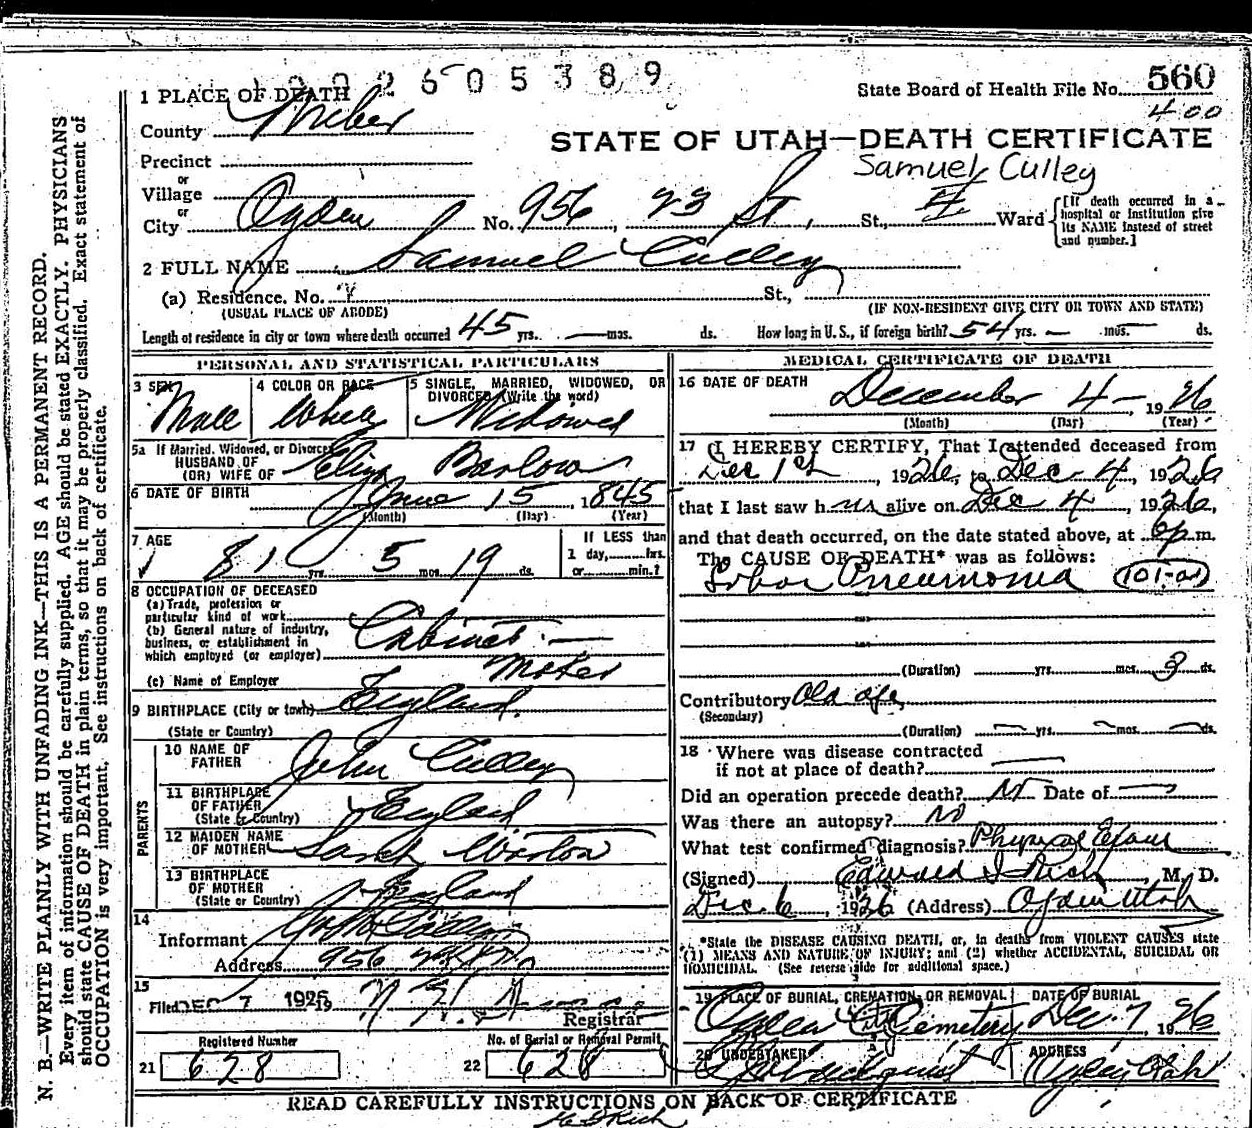 2605389
1 PLACE OF DEATH
State Board of Health File No. 560
400
County Weber
STATE OF UTAH—DEATH CERTIFICATE
Precinct
Samuel Culley
or
Village
or
City Ogden No. 956 23 St, St., 4 Ward
[If death occurred in a hospital or institution give its NAME instead of street and number.]
2 FULL NAME Samuel Culley
(a) Residence. No. St.,
(USUAL PLACE OF ABODE) (IF NON-RESIDENT GIVE CITY OR TOWN AND STATE)
Length of residence in city or town where death occurred 45 yrs. — mos. ds. How long in U. S., if foreign birth? 54 yrs. — mos. — ds.
PERSONAL AND STATISTICAL PARTICULARS
3 SEX Male
4 COLOR OR RACE White
5 SINGLE, MARRIED, WIDOWED, OR DIVORCED (Write the word) Widowed
5a If Married, Widowed, or Divorced
HUSBAND OF
(OR) WIFE OF Eliza Barlow
6 DATE OF BIRTH June 15, 1845
(Month) (Day) (Year)
7 AGE 81 yrs 5 mos 19 ds.
If LESS than
1 day, hrs.
or min.?
8 OCCUPATION OF DECEASED
(a) Trade, profession or
particular kind of work
(b) General nature of industry,
business, or establishment in
which employed (or employer)
Cabinet —
Maker
(c) Name of Employer
9 BIRTHPLACE (City or town) England
(State or Country)
PARENTS
10 NAME OF
FATHER John Culley
11 BIRTHPLACE
OF FATHER
(State or Country) England
12 MAIDEN NAME
OF MOTHER Sarah
13 BIRTHPLACE
OF MOTHER
(State or Country) England
14
Informant Culley
Address 956
15
Filed DEC 7 1926
Registrar
Registered Number
21 628
No. of Burial or Removal Permit
22 628
MEDICAL CERTIFICATE OF DEATH
16 DATE OF DEATH December 4 —, 1926
(Month) (Day) (Year)
17 I HEREBY CERTIFY, That I attended deceased from
Dec 1st, 1926, to Dec. 4, 1926
that I last saw him alive on Dec 4, 1926,
and that death occurred, on the date stated above, at 6 p.m.
The CAUSE OF DEATH* was as follows:
Lobar Pneumonia 101-a
(Duration) yrs. mos. 3 ds.
Contributory Old age
(Secondary)
(Duration) — yrs. — mos. — ds.
18 Where was disease contracted
if not at place of death? —
Did an operation precede death? No Date of —
Was there an autopsy? No
What test confirmed diagnosis? Physical Exam
(Signed) Edward I Rich, M. D.
Dec. 6, 1926 (Address) Ogden Utah
*State the DISEASE CAUSING DEATH, or, in deaths from VIOLENT CAUSES state
(1) MEANS AND NATURE OF INJURY; and (2) whether ACCIDENTAL, SUICIDAL OR
HOMICIDAL. (See reverse side for additional space.)
19 PLACE OF BURIAL, CREMATION, OR REMOVAL Ogden City Cemetery
DATE OF BURIAL Dec. 7, 1926
20 UNDERTAKER
ADDRESS Ogden Utah
READ CAREFULLY INSTRUCTIONS ON BACK OF CERTIFICATE
N. B.—WRITE PLAINLY WITH UNFADING INK—THIS IS A PERMANENT RECORD.
Every item of information should be carefully supplied. AGE should be stated EXACTLY. PHYSICIANS
should state CAUSE OF DEATH in plain terms, so that it may be properly classified. Exact statement of
OCCUPATION is very important. See instructions on back of certificate.